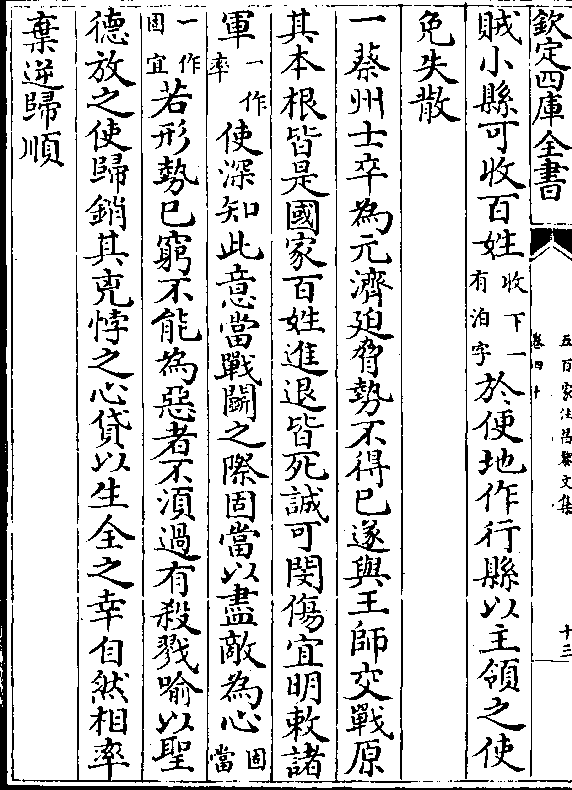 欽定四庫全書
五百家注昌黎文集
卷四十
十三
賊小縣可收百姓收下一有泊字於便地作行縣以主領之使
免失散
一蔡州士卒為元濟迫脅勢不得已遂與王師交戰原
其本根皆是國家百姓進退皆死誠可閔傷宜明敕諸
軍一作率使深知此意當戰鬭之際固當以盡敵為心固當
一作固宜若形勢已窮不能為惡者不須過有殺戮喻以聖
德放之使歸銷其兇悖之心貸以生全之幸自然相率
棄逆歸順